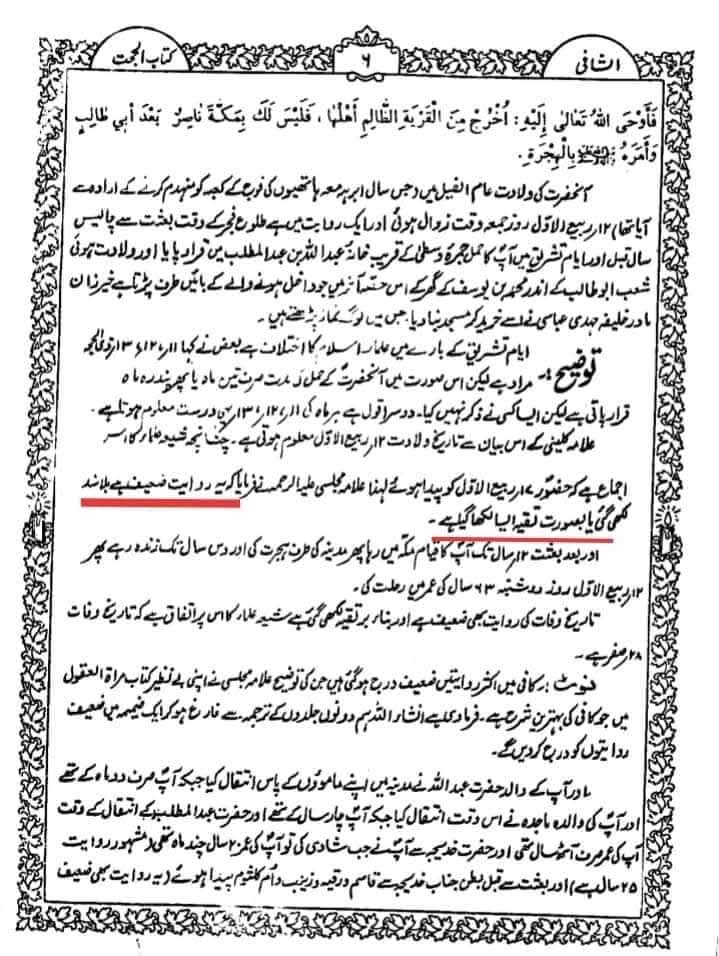 الشافی
۶
کتاب الحجت
فَأَوْحَى اللهُ تَعَالٰى إِلَيْهِ: اُخْرُجْ مِنَ الْقَرْيَةِ الظَّالِمِ أَهْلُهَا، فَلَيْسَ لَكَ بِمَكَّةَ نَاصِرٌ بَعْدَ أَبي طَالِبٍ
وَأَمَرَهُ بِالْهِجْرَةِ.
آنحضرت کی ولادت عام الفیل میں (جس سال ابرہہ معہ ہاتھیوں کی فوج کے کعبہ کو منہدم کرنے کے ارادہ سے
آیا تھا) ۱۲؍ ربیع الاوّل روز جمعہ وقت زوال ہوئی اور ایک روایت میں ہے طلوع فجر کے وقت بعثت سے چالیس
سال قبل اور ایام تشریق میں آپؐ کا حمل جمرہ وسطیٰ کے قریب خانہ عبداللہ بن عبدالمطلب میں قرار پایا اور ولادت ہوئی
شعب ابو طالب کے اندر محمد بن یوسف کے گھر کے اس حصہ آخر میں جو داخل ہونے والے کے بائیں طرف پڑتا ہے خیزران
مادر خلیفہ مہدی عباسی نے اسے خرید کر مسجد بنا دیا۔ جس میں لوگ نماز پڑھتے ہیں۔
توضیح:۔ ایام تشریق کے بارے میں علماء اسلام کا اختلاف ہے بعض نے کہا ۱۱، ۱۲، ۱۳؍ ذی الحجہ
مراد ہے لیکن اس صورت میں آنحضرتؐ کے حمل کی مدت صرف تین ماہ یا پھر پندرہ ماہ
قرار پاتی ہے لیکن ایسا کسی نے ذکر نہیں کیا۔ دوسرا قول ہے ہر ماہ کی ۱۱، ۱۲، ۱۳؍ یہی درست معلوم ہوتا ہے۔
علامہ کلینی کے اس بیان سے تاریخ ولادت ۱۲؍ ربیع الاوّل معلوم ہوتی ہے۔ چنانچہ شیعہ علماء کا اس پر
اجماع ہے کہ حضورؐ ۱۷؍ ربیع الاوّل کو پیدا ہوئے لہٰذا علامہ مجلسی علیہ الرحمہ نے فرمایا کہ یہ روایت ضعیف ہے بلا سند
لکھی گئی یا بصورت تقیہ ایسا لکھا گیا ہے۔
اور بعد بعثت ۱۲؍ سال تک آپؐ کا قیام مکہ میں رہا پھر مدینہ کی طرف ہجرت کی اور دس سال تک زندہ رہے پھر
۱۲؍ ربیع الاوّل روز دوشنبہ ۶۳ سال کی عمر میں رحلت کی۔
تاریخ وفات کی روایت بھی ضعیف ہے اور بناء بر تقیہ لکھی گئی ہے شیعہ علماء کا اس پر اتفاق ہے کہ تاریخ وفات
۲۸؍ صفر ہے۔
نوٹ:۔ کافی میں اکثر روایتیں ضعیف درج ہو گئی ہیں جن کی توضیح علامہ مجلسی نے اپنی بے نظیر کتاب مراۃ العقول
میں جو کافی کی بہترین شرح ہے۔ فرما دی ہے انشاء اللہ ہم دونوں جلدوں کے ترجمہ سے فارغ ہو کر ایک ضمیمہ میں ضعیف
روایتوں کو درج کر دیں گے۔
اور آپ کے والد حضرت عبداللہ نے مدینہ میں اپنے ماموؤں کے پاس انتقال کیا جبکہ آپؐ صرف دو ماہ کے تھے
اور آپؐ کی والدہ ماجدہ نے اس وقت انتقال کیا جبکہ آپؐ چار سال کے تھے اور حضرت عبدالمطلب کے انتقال کے وقت
آپ کی عمر صرف آٹھ سال تھی اور حضرت خدیجہ سے آپؐ نے جب شادی کی تو آپؐ کی عمر ۲۰ سال چند ماہ تھی (مشہور روایت
۲۵ سال ہے) اور بعثت سے قبل بطن جناب خدیجہ سے قاسم و رقیہ و زینب و ام کلثوم پیدا ہوئے (یہ روایت بھی ضعیف